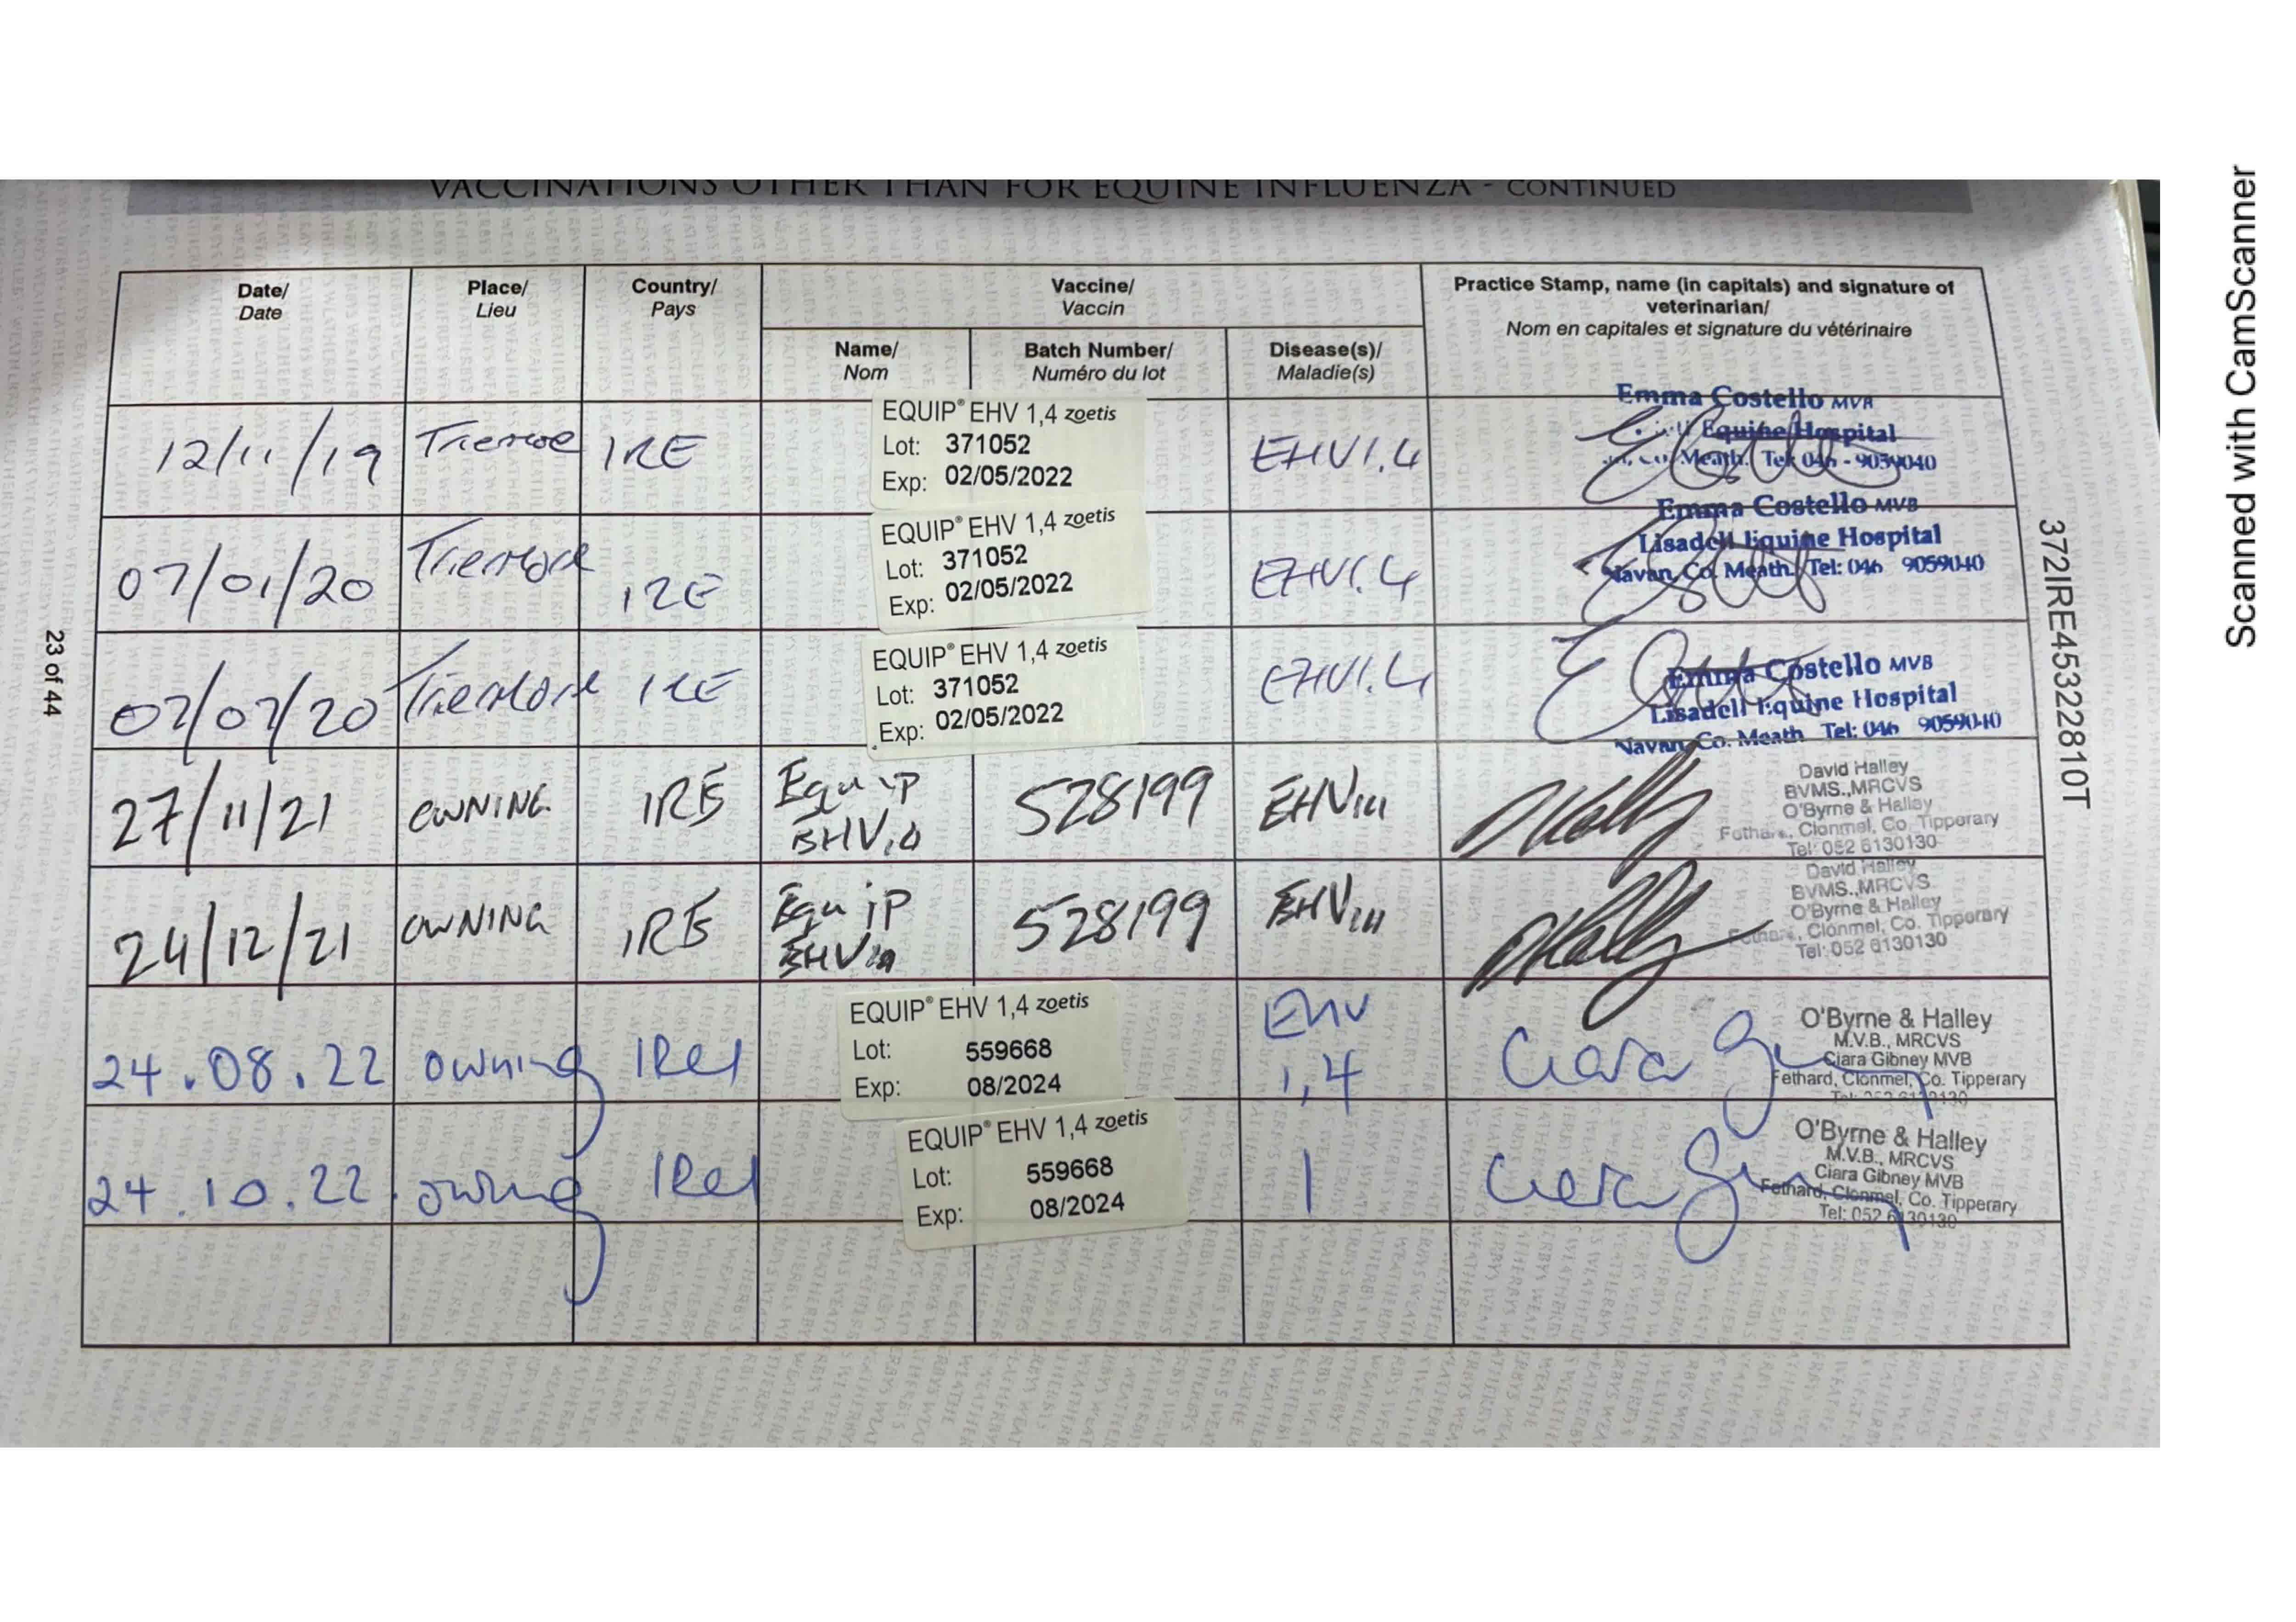 VACCINATIONS OTHER THAN FOR EQUINE INFLUENZA - CONTINUED
Date/
Date
Place/
Lieu
Country/
Pays
Vaccine/
Vaccin
Practice Stamp, name (in capitals) and signature of
veterinarian/
Nom en capitales et signature du vétérinaire
Name/
Nom
Batch Number/
Numéro du lot
Disease(s)/
Maladie(s)
12/11/19
IRE
EQUIP® EHV 1,4 zoetis
Lot: 371052
Exp: 02/05/2022
EHV1.4
Emma Costello MVB
Equine Hospital
Co. Meath. Tel: 046 - 9059040
07/01/20
IRE
EQUIP® EHV 1,4 zoetis
Lot: 371052
Exp: 02/05/2022
EHV1.4
Emma Costello MVB
Lisadell Equine Hospital
Navan, Co. Meath. Tel: 046 9059040
07/07/20
IRE
EQUIP® EHV 1,4 zoetis
Lot: 371052
Exp: 02/05/2022
EHV1.4
Emma Costello MVB
Lisadell Equine Hospital
Navan, Co. Meath Tel: 046 9059040
27/11/21
OWNING
IRE
Equip
528199
David Halley
BVMS.,MRCVS
O'Byrne & Halley
Fethard, Clonmel, Co. Tipperary
Tel: 052 6130130
24/12/21
OWNING
IRE
Equip
528199
David Halley
BVMS.,MRCVS
O'Byrne & Halley
Fethard, Clonmel, Co. Tipperary
Tel: 052 6130130
24.08.22
owning
IRel
EQUIP® EHV 1,4 zoetis
Lot: 559668
Exp: 08/2024
Ehv
1,4
O'Byrne & Halley
M.V.B., MRCVS
Ciara Gibney MVB
Fethard, Clonmel, Co. Tipperary
Tel: 052 6130130
24.10.22
owning
IRel
EQUIP® EHV 1,4 zoetis
Lot: 559668
Exp: 08/2024
O'Byrne & Halley
M.V.B., MRCVS
Ciara Gibney MVB
Fethard, Clonmel, Co. Tipperary
Tel: 052 6130130
23 of 44
372IRE45322810T
Scanned with CamScanner